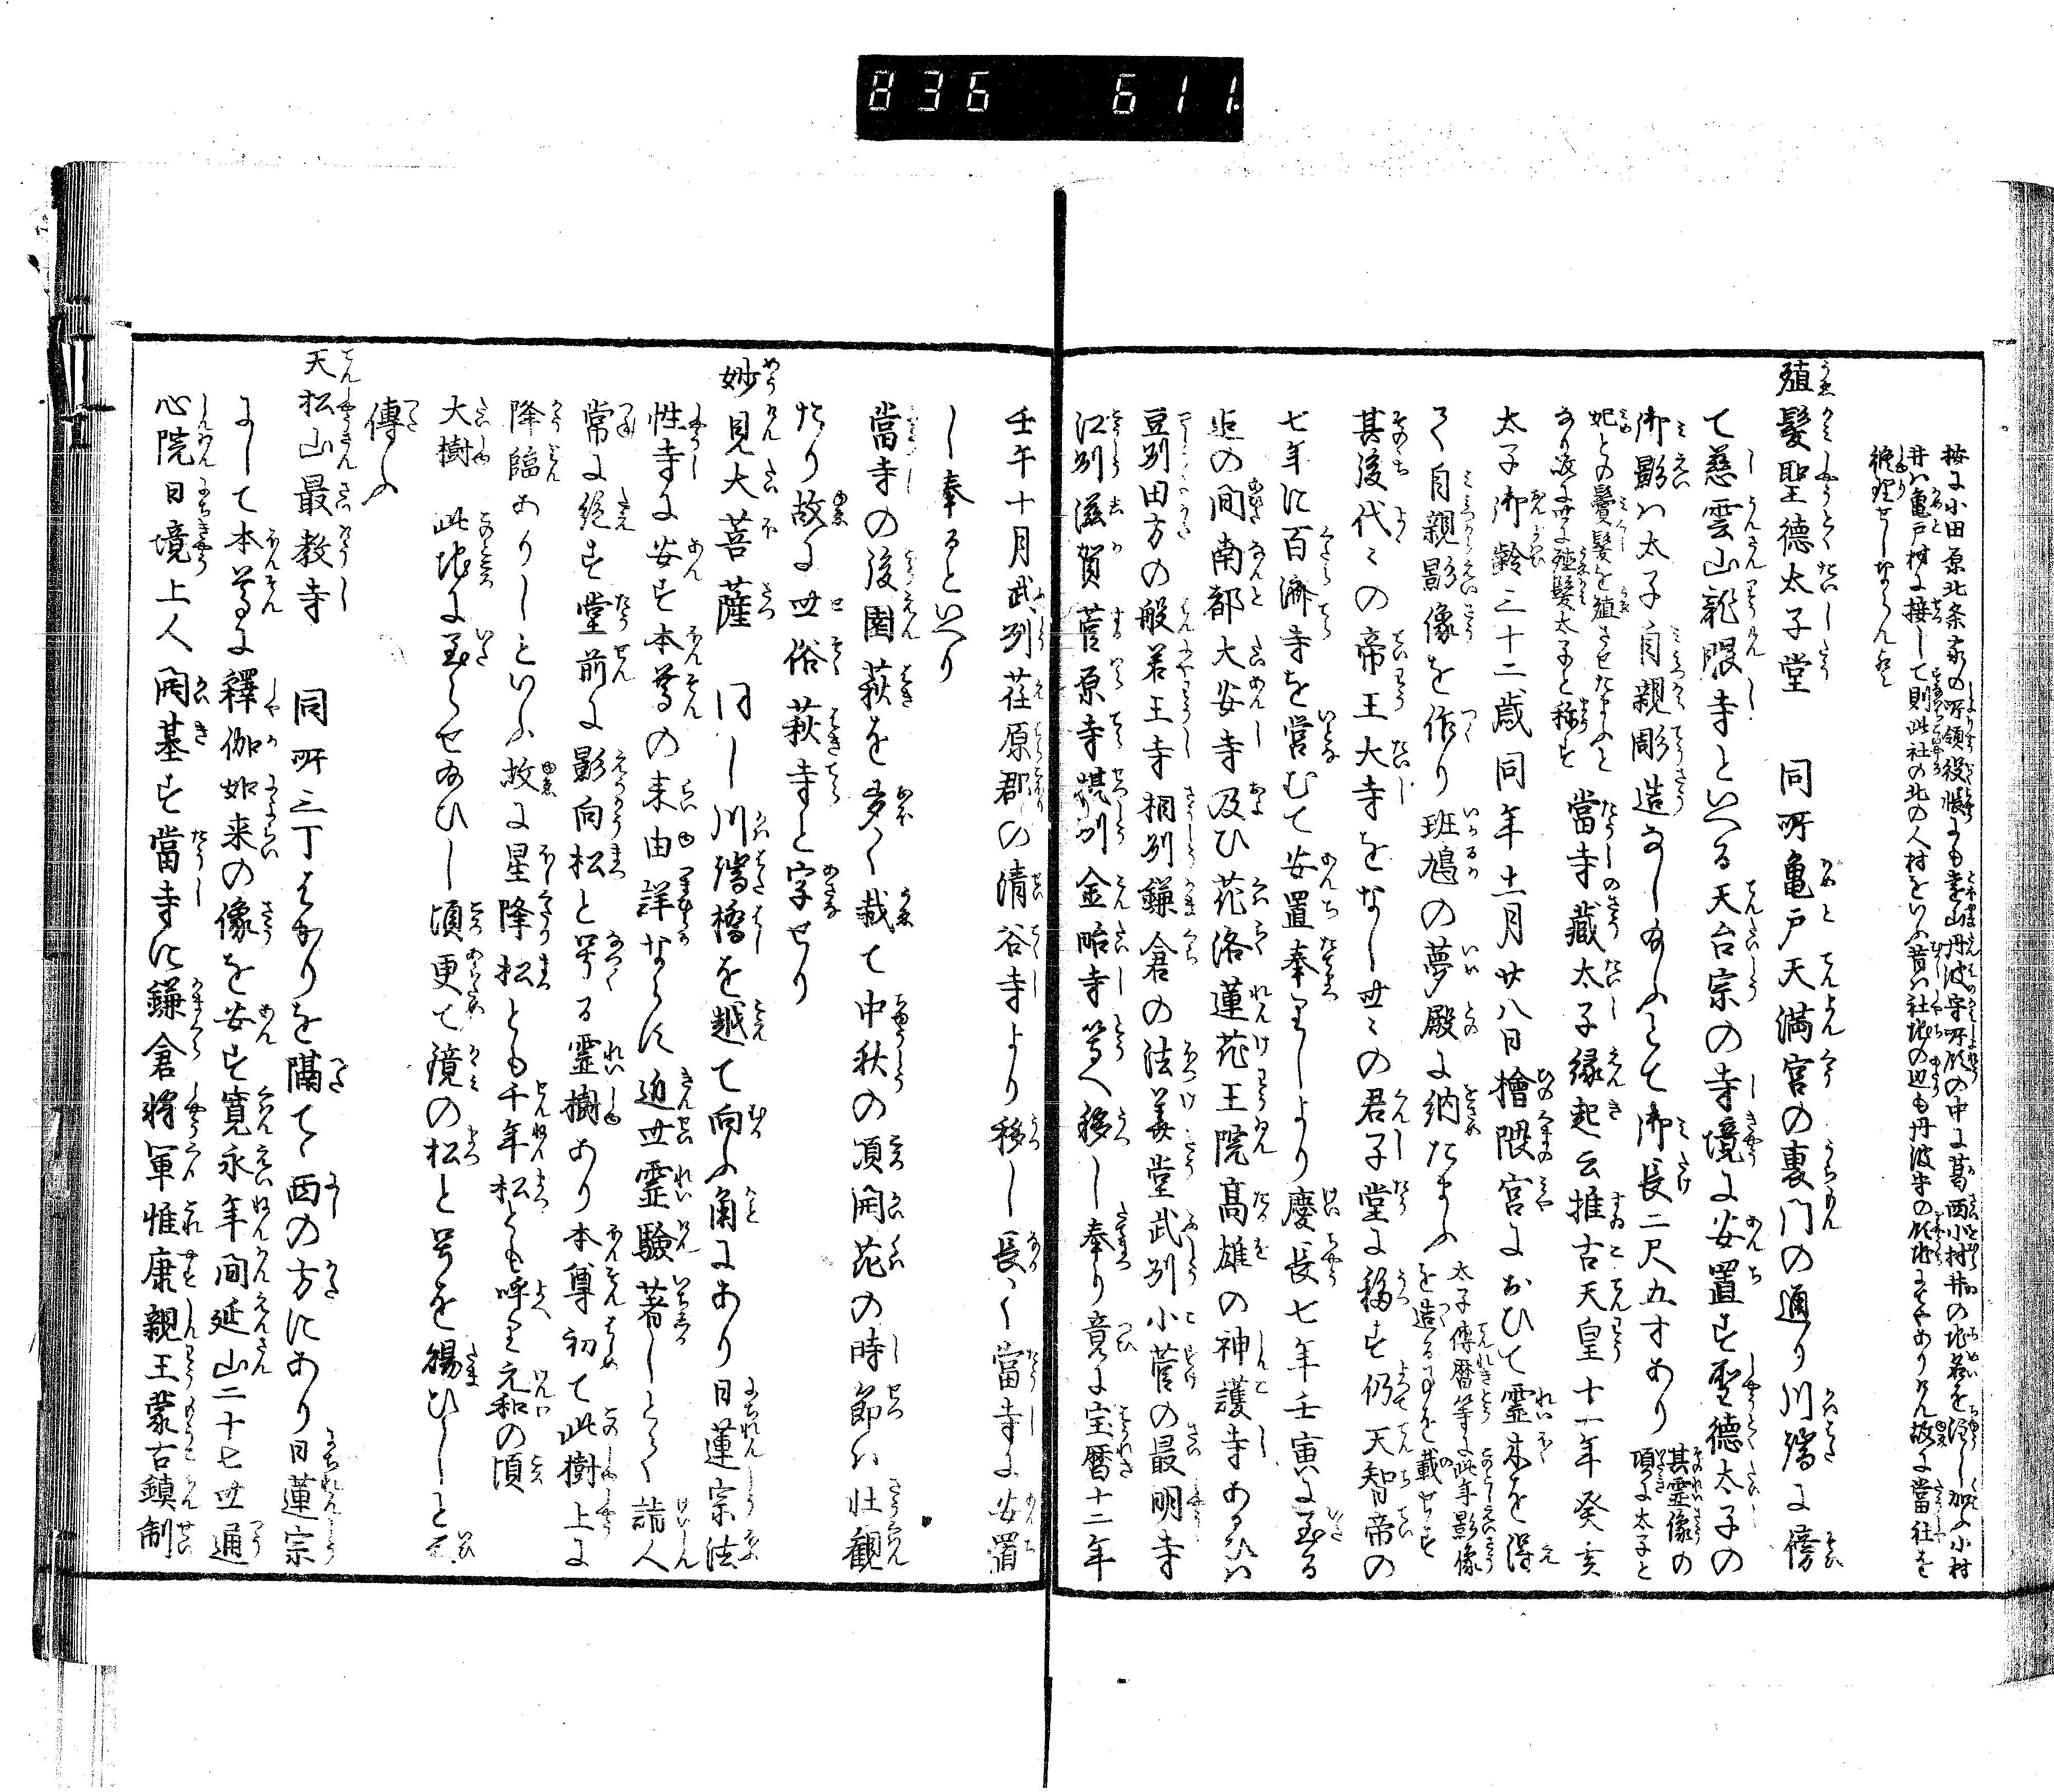 836 611.
按に小田原北条家の所領役帳にも遠山丹波守所領の中に葛西小村井の地名を注し加ふ小村
井ハ亀戸村に接して則此社の北の人村をいふ昔ハ社地の辺も丹波守の領地にてやありけん故に當社を
修理せしならん歟
殖髪聖徳太子堂 同所亀戸天満宮の裏門の通り川端に傍
て慈雲山龍眼寺といへる天台宗の寺境に安置す聖徳太子の
御影ハ太子自親彫造なし給ふとて御長二尺五寸あり 其霊像の頂に太子と
妃との鬢髪を殖させたまふと
あり故に世に殖髪太子と称す 當寺蔵太子縁起云推古天皇十一年癸亥
太子御齢三十二歳同年十一月廿八日檜隈宮におひて霊木を得
て自親影像を作り班鳩の夢殿に納たまふ 太子傳暦等に此年影像を造るよしを載せす
其後代々の帝王大寺をなし世々の君子堂に移す仍天智帝の
七年に百済寺を営むて安置奉りしより慶長七年壬寅に至る
迄の間南都大安寺及ひ花洛蓮花王院高雄の神護寺あるひハ
豆州田方の般若王寺相州鎌倉の法華堂武州小菅の最明寺
江州滋賀菅原寺摂州金胎寺等へ移し奉り竟に宝暦十二年
壬午十月武州荏原郡の清谷寺より移し長く當寺に安置
し奉るといへり
當寺の後園萩を多く栽て中秋の頃開花の時節ハ壮観
たり故に世俗萩寺と字せり
妙見大菩薩 同し川端橋を越て向ふ角にあり日蓮宗法
性寺に安す本尊の来由詳ならす近世霊験著しとて詣人
常に絶す堂前に影向松と号る霊樹あり本尊初て此樹上に
降臨ありしといふ故に星降松とも千年松とも呼り元和の頃
大樹 此地に至らせ給ひし頃更て鏡の松と号を賜ひしと云
傳ふ
天松山最教寺 同所三丁はかりを隔て西の方にあり日蓮宗
にして本尊に釋伽如来の像を安す寛永年間延山二十七世通
心院日境上人開基す當寺に鎌倉将軍惟康親王蒙古鎮制